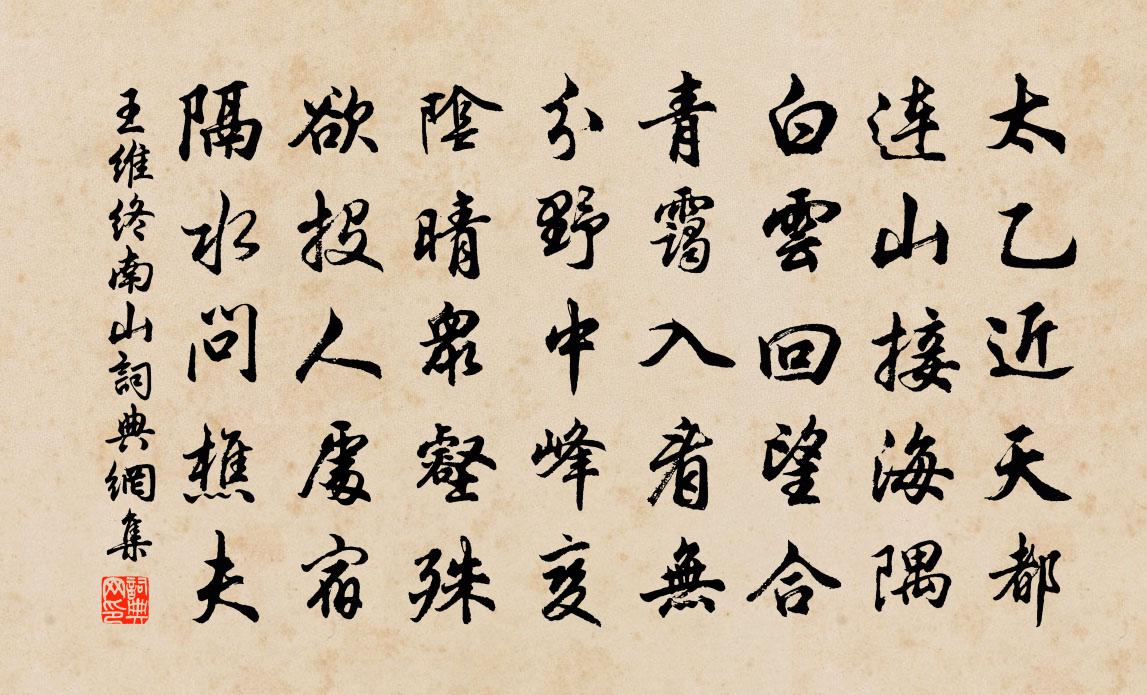 太乙近天都
連山接海隅
白雲回望合
青靄入看無
分野中峰變
陰晴眾壑殊
欲投人處宿
隔水問樵夫
王維終南山詞典網集
詞典網印